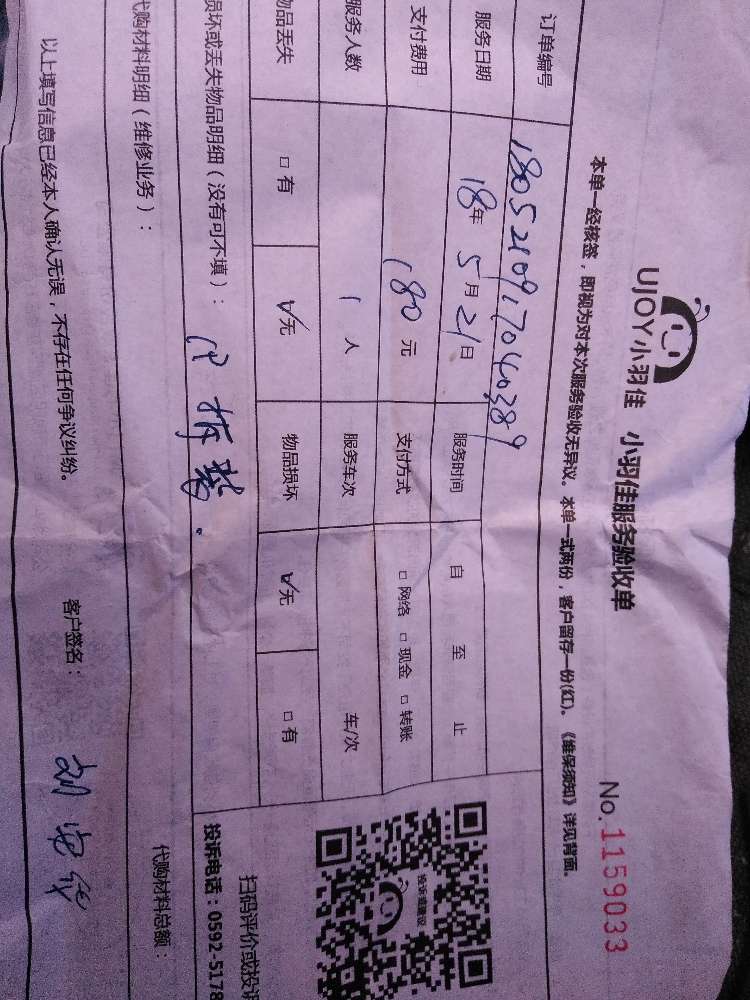 UJOY小羽佳 小羽佳服务验收单
No.1159033
本单一经核签，即视为对本次服务验收无异议。本单一式两份，客户留存一份(红)。《维保须知》详见背面。
订单编号 180521091704389
服务日期 18年 5月 21日 服务时间 自 至 止
支付费用 180元 支付方式 □网络 □现金 □转账
服务人数 1人 服务车次 车/次
物品丢失 □有 ☑无 物品损坏 ☑无 □有
损坏或丢失物品明细（没有可不填）：
扫码评价或投诉
投诉建议
投诉电话：0592-5178
代购材料明细（维修业务）： 代购材料总额：
以上填写信息已经本人确认无误，不存在任何争议纠纷。 客户签名：